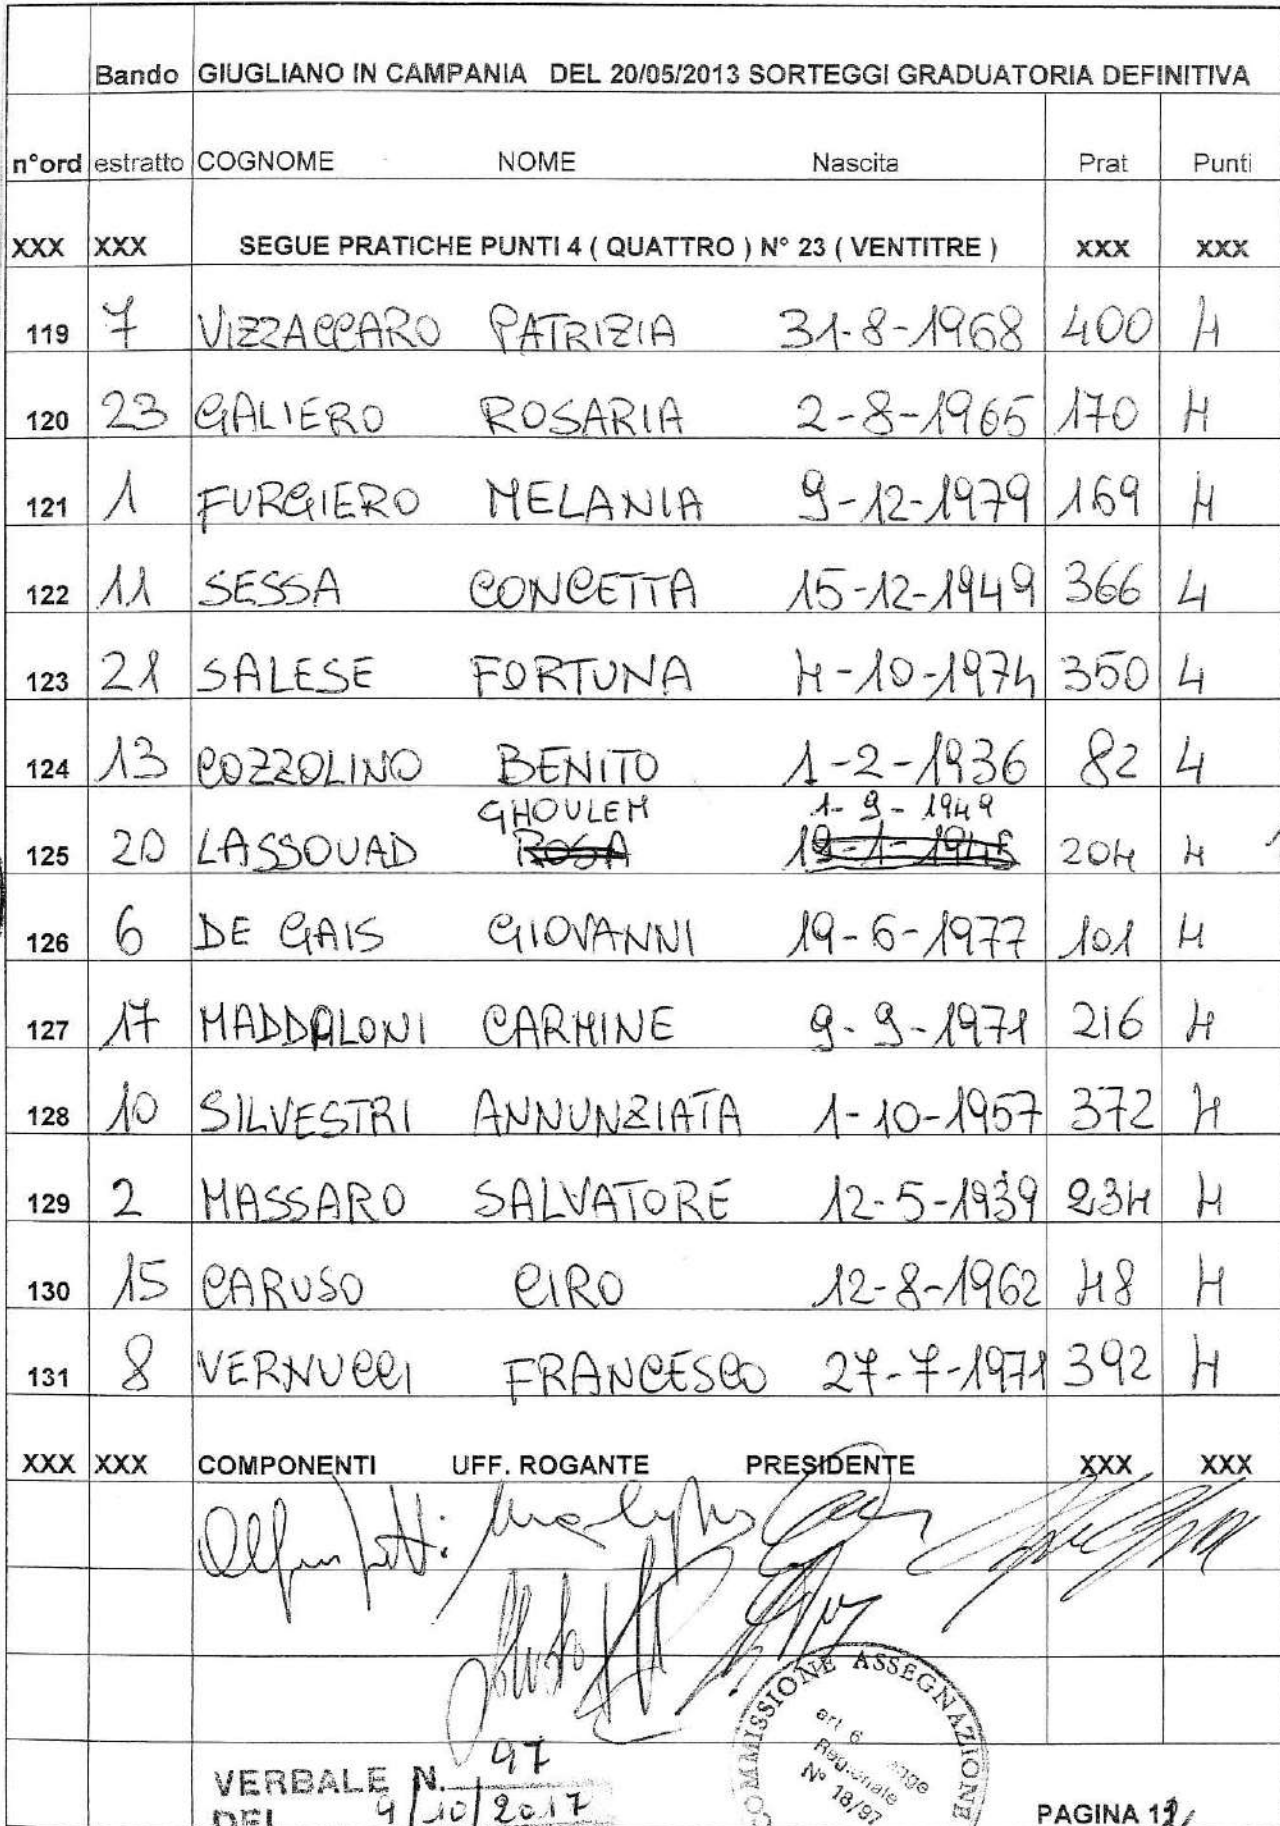 Bando GIUGLIANO IN CAMPANIA DEL 20/05/2013 SORTEGGI GRADUATORIA DEFINITIVA
n°ord estratto COGNOME NOME Nascita Prat Punti
XXX XXX SEGUE PRATICHE PUNTI 4 ( QUATTRO ) N° 23 ( VENTITRE ) XXX XXX
119 7 VIZZACCARO PATRIZIA 31-8-1968 400 4
120 23 GALIERO ROSARIA 2-8-1965 170 4
121 1 FURGIERO MELANIA 9-12-1979 169 4
122 11 SESSA CONCETTA 15-12-1949 366 4
123 21 SALESE FORTUNA 4-10-1974 350 4
124 13 COZZOLINO BENITO 1-2-1936 82 4
GHOULEM 1-9-1949
125 20 LASSOUAD ROSA 204 4
126 6 DE GAIS GIOVANNI 19-6-1977 101 4
127 17 MADDALONI CARMINE 9-9-1971 216 4
128 10 SILVESTRI ANNUNZIATA 1-10-1957 372 4
129 2 MASSARO SALVATORE 12-5-1939 234 4
130 15 CARUSO CIRO 12-8-1962 48 4
131 8 VERNUCCI FRANCESCO 27-7-1971 392 4
XXX XXX COMPONENTI UFF. ROGANTE PRESIDENTE XXX XXX
COMMISSIONE ASSEGNAZIONE
art 6
Regionale
N° 18/97
VERBALE N. 97
DEL 4/10/2017
PAGINA 12